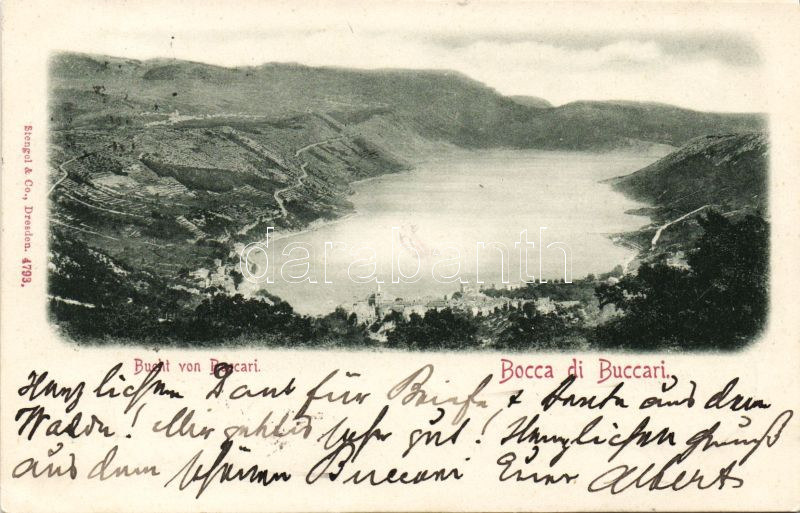 Stengel & Co., Dresden. 4793.
darabanth
Bucht von Buccari.
Bocca di Buccari.
Herzlichen Dank für Briefe & Karte aus dem
Walde! Mir geht es sehr gut! Herzlichen Gruß
aus dem schönen Buccari Euer Albert